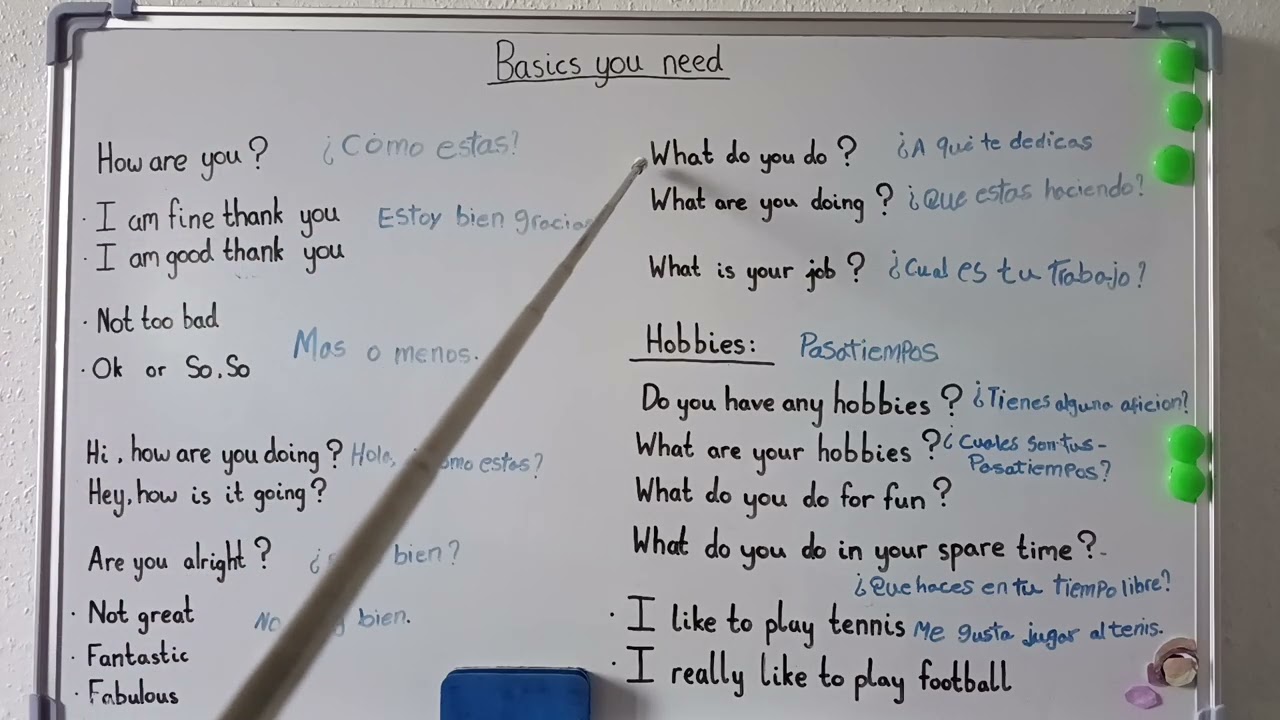 Basics you need
How are you? ¿Como estas?
· I am fine thank you Estoy bien gracias
· I am good thank you
· Not too bad
Mas o menos.
· Ok or So,So
Hi, how are you doing? Hola, como estas?
Hey, how is it going?
Are you alright? ¿ bien?
· Not great No bien.
· Fantastic
· Fabulous
What do you do? ¿A qué te dedicas
What are you doing? ¿Que estas haciendo?
What is your job? ¿Cual es tu Trabajo?
Hobbies: Pasatiempos
Do you have any hobbies? ¿Tienes alguna aficion?
What are your hobbies? ¿Cuales son tus-
Pasatiempos?
What do you do for fun?
What do you do in your spare time?-
¿Que haces en tu tiempo libre?
· I like to play tennis Me gusta jugar al tenis.
· I really like to play football